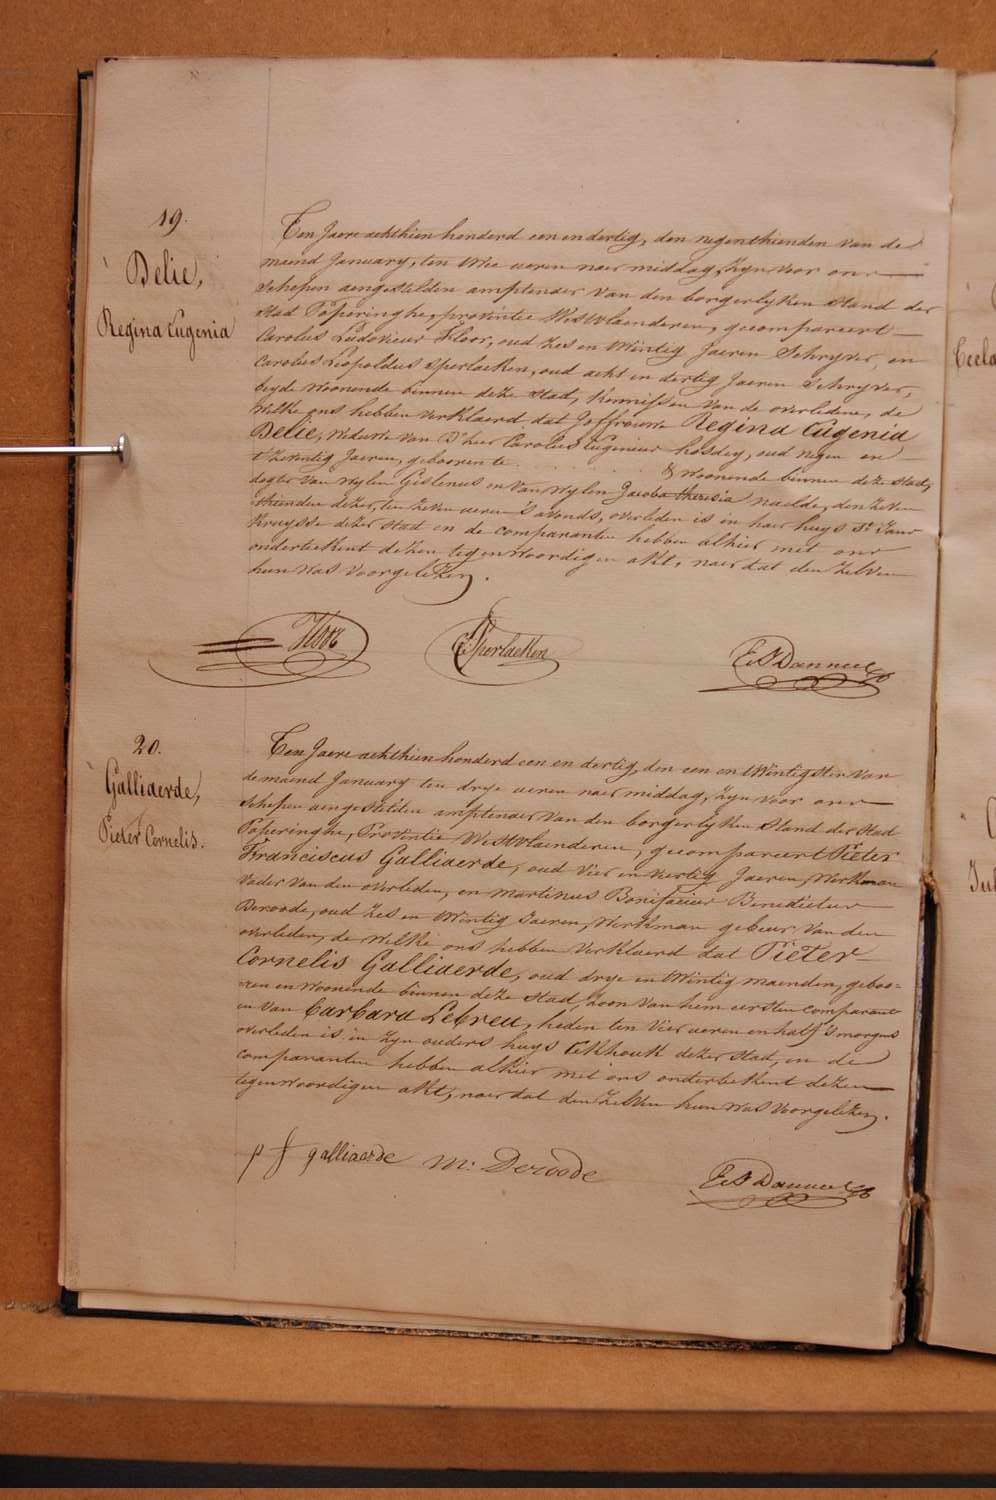 19.
Delie,
Regina Eugenia
Ten Jaere achthien honderd een en dertig, den negenthienden van de
maend January, ten twee ueren naer middag, zyn voor ons
schepen aengestelden amptenaer van den borgerlyken stand der
stad Poperinghe, provintie Westvlaenderen, gecompareert
Carolus Ludovicus Floor, oud zes en twintig Jaeren Schryver, en
Carolus Leopoldus Sperlaeken, oud acht en dertig Jaeren Schryver,
beyde woonende binnen deze stad, kennissen van de overledene, de
welke ons hebben verklaerd dat Joffrouwe Regina Eugenia
Delie, weduwe van D'heer Carolus Eugenius hosdey, oud negen en
t'zeventig Jaeren, geboren te . . . . . . . & woonende binnen deze stad,
dogter van wylen Gislenus en van wylen Jacoba theresia naelde, den zeven
thienden dezer, ten zeven ueren s'avonds, overleden is in haer huys St. Jans
kruysse dezer stad en de comparanten hebben alhier met ons
onderteekent dezen tegenwoordigen akt, naer dat den zelven
hun was voorgelezen.
Floor
C. L. Sperlaeken
20.
Galliaerde,
Pieter Cornelis.
Ten Jaere achthien honderd een en dertig, den een en twintigsten van
de maend January ten drye ueren naer middag, zyn voor ons
schepen aengestelden amptenaer van den borgerlyken stand der stad
Poperinghe, Provintie Westvlaenderen, gecompareert Pieter
Franciscus Galliaerde, oud vier en veertig Jaeren, Werkman
vader van den overleden, en martinus Bonifacius Benedictus
Deroode, oud zes en twintig Jaeren, Werkman gebeur van den
overleden, de welke ons hebben verklaerd dat Pieter
Cornelis Galliaerde, oud drye en twintig maenden, geboo-
ren en woonende binnen deze stad, zoon van hem eersten comparant
en van Barbara Lebreu, heden ten vier ueren en half s'morgens
overleden is in zyn ouders huys Ekhouk dezer stad, en de
comparanten hebben alhier met ons onderteekent dezen
tegenwoordigen akt, naer dat den zelven hun was voorgelezen.
p f galliaerde
m: Deroode